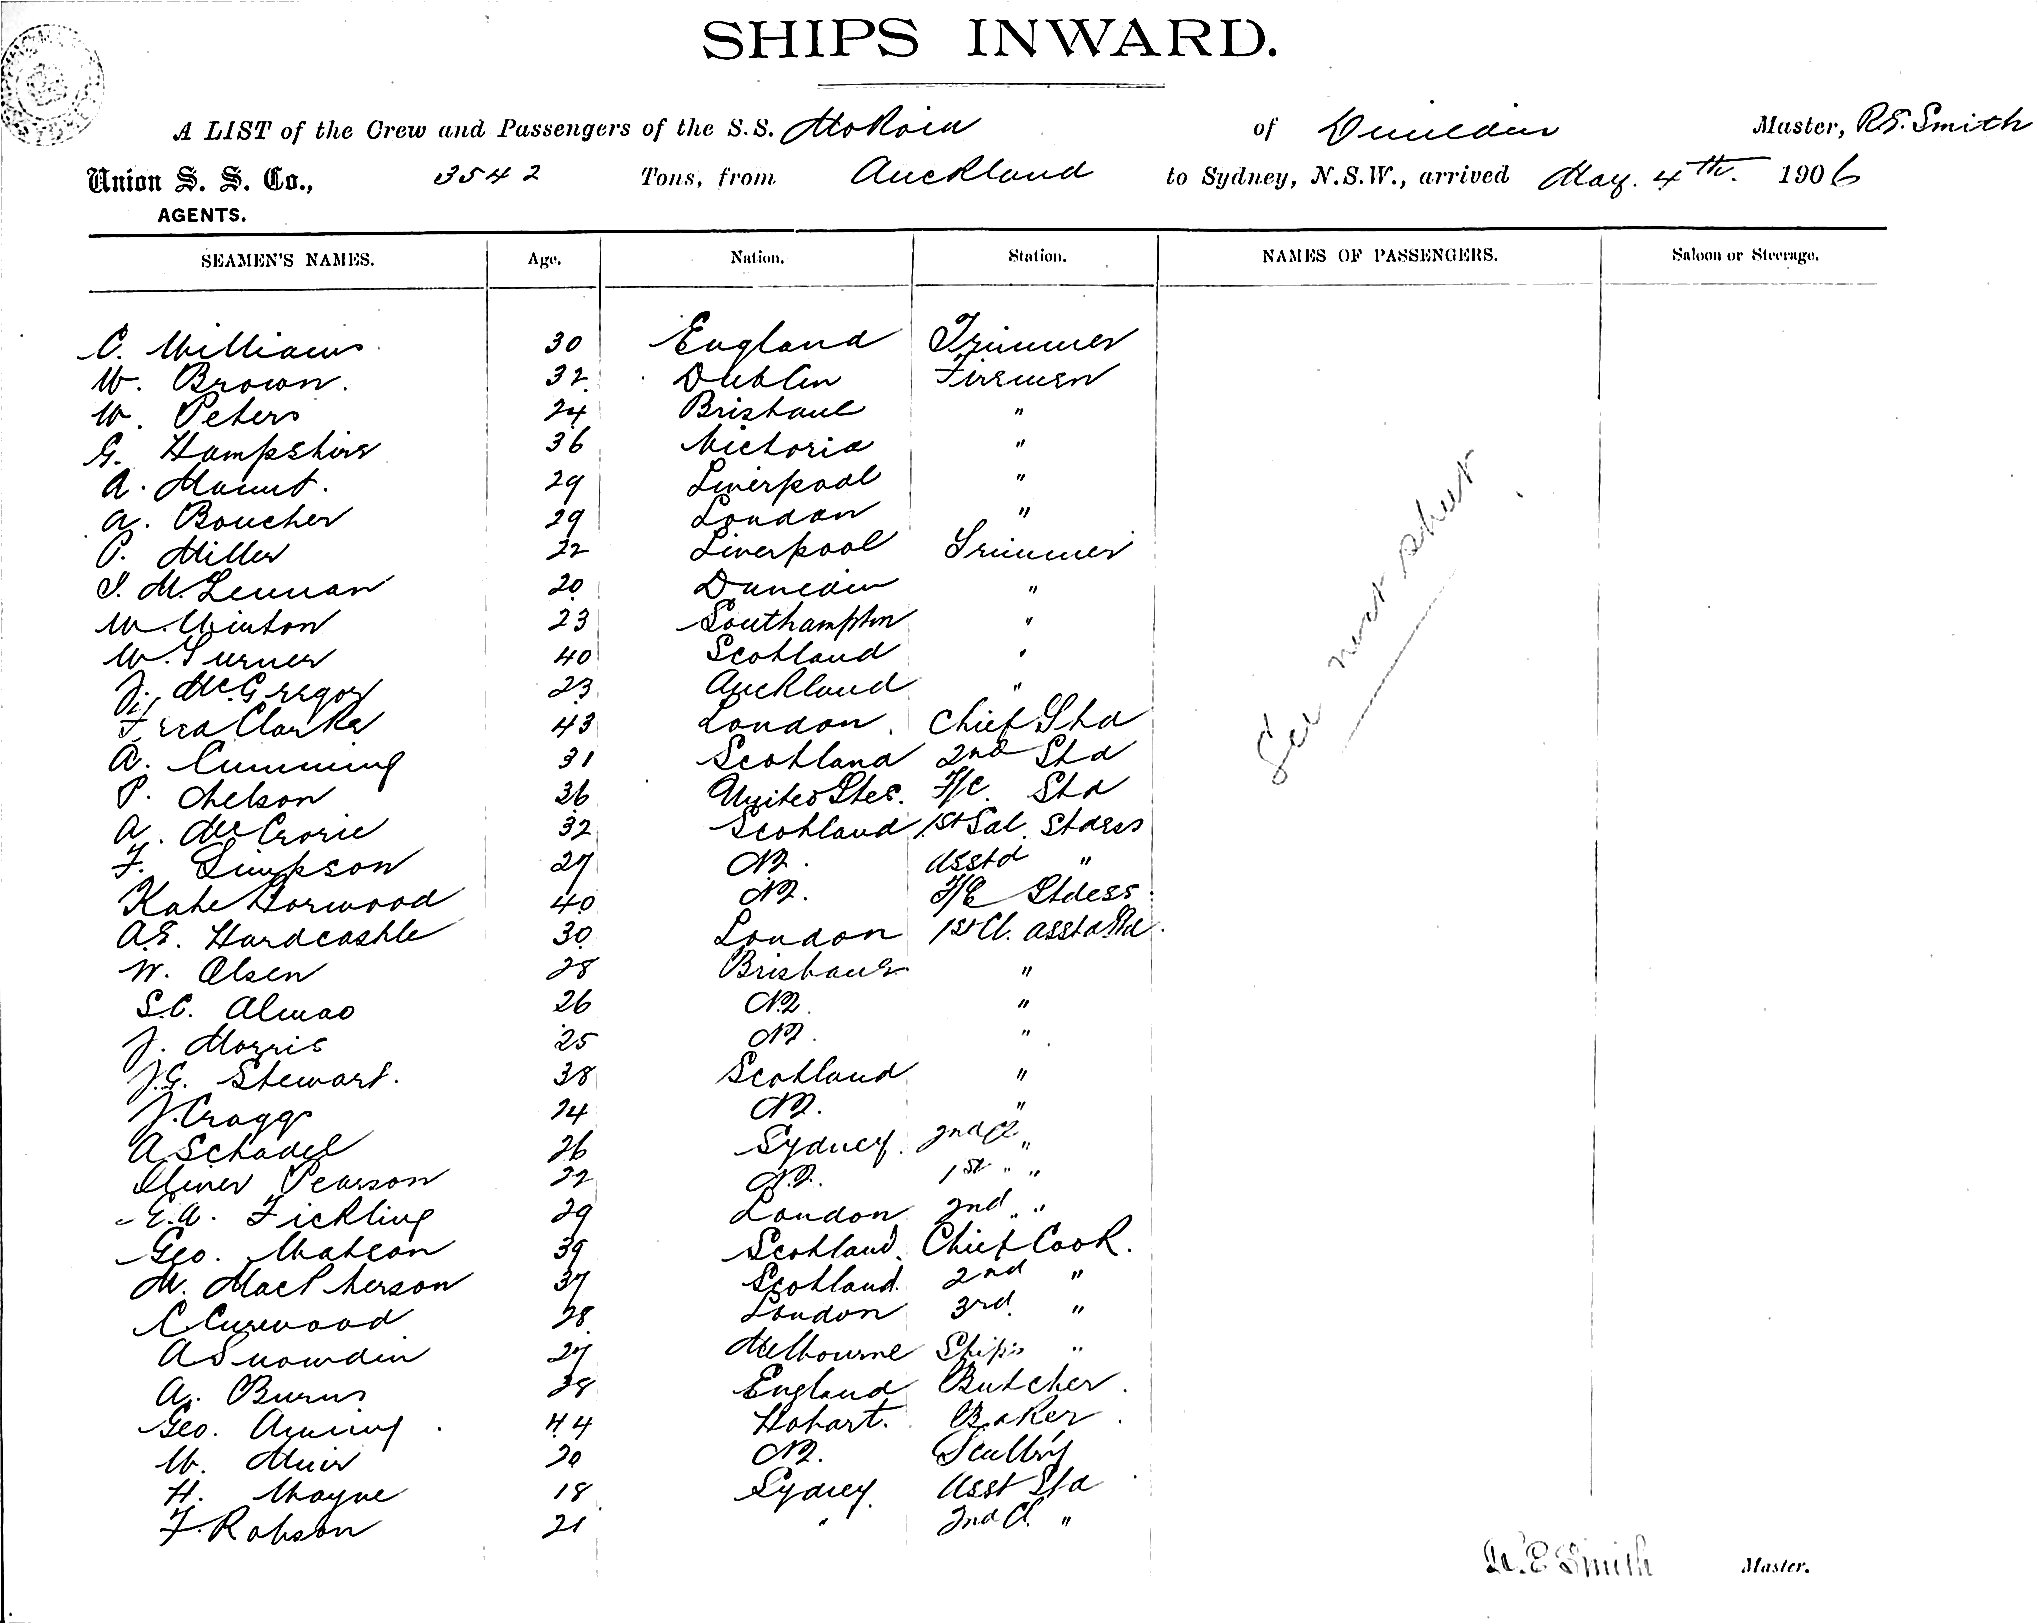 SHIPS INWARD.
A LIST of the Crew and Passengers of the S.S. Mokoia of Dunedin Master, R.E. Smith
Union S. S. Co., 3542 Tons, from Auckland to Sydney, N.S.W., arrived May. 4th. 1906
AGENTS.
SEAMEN'S NAMES. Age. Nation. Station. NAMES OF PASSENGERS. Saloon or Steerage.
C. Williams 30 England Trimmer
W. Brown. 32 Dublin Firemen
W. Peters 24 Brisbane "
G. Hampshire 36 Victoria "
A. Mount. 29 Liverpool "
A. Boucher 29 London "
P. Miller 22 Liverpool Trimmer
McLennan 20 Dunedin "
W. Winton 23 Southampton "
W. Turner 40 Scotland "
J. McGregor 23 Auckland "
Fred Clarke 43 London. Chief Std
A. Cumming 31 Scotland 2nd Std
P. Nelson 36 United Stes. F/C. Std
A. McCrorie 32 Scotland 1st Sal. Stdess
F. Simpson 27 NZ. Asstd "
Kate Horwood 40 NZ. F/C Stdess.
A.E. Hardcastle 30 London 1st Cl. asstd Std.
W. Olsen 28 Brisbane "
S.C. Almao 26 NZ. "
J. Morris 25 NZ. "
J.G. Stewart. 38 Scotland "
J. Cragg 24 NZ. "
A Schadel 26 Sydney. 2nd Cl. "
Oliver Pearson 22 NZ. 1st " "
E.A. Fickling 29 London 2nd " "
Geo. Watson 39 Scotland. Chief Cook.
W. MacPherson 37 Scotland. 2nd "
C Curwood 28 London 3rd. "
A Snowdin 27 Melbourne Ship's "
A. Burns 38 England Butcher.
Geo. Anning 44 Hobart. Baker.
W. Muir 20 NZ. Scull'y
H. Wayne 18 Sydney. Asst Std
F. Robson 21 " 2nd Cl. "
See next sheet
R. E Smith Master.